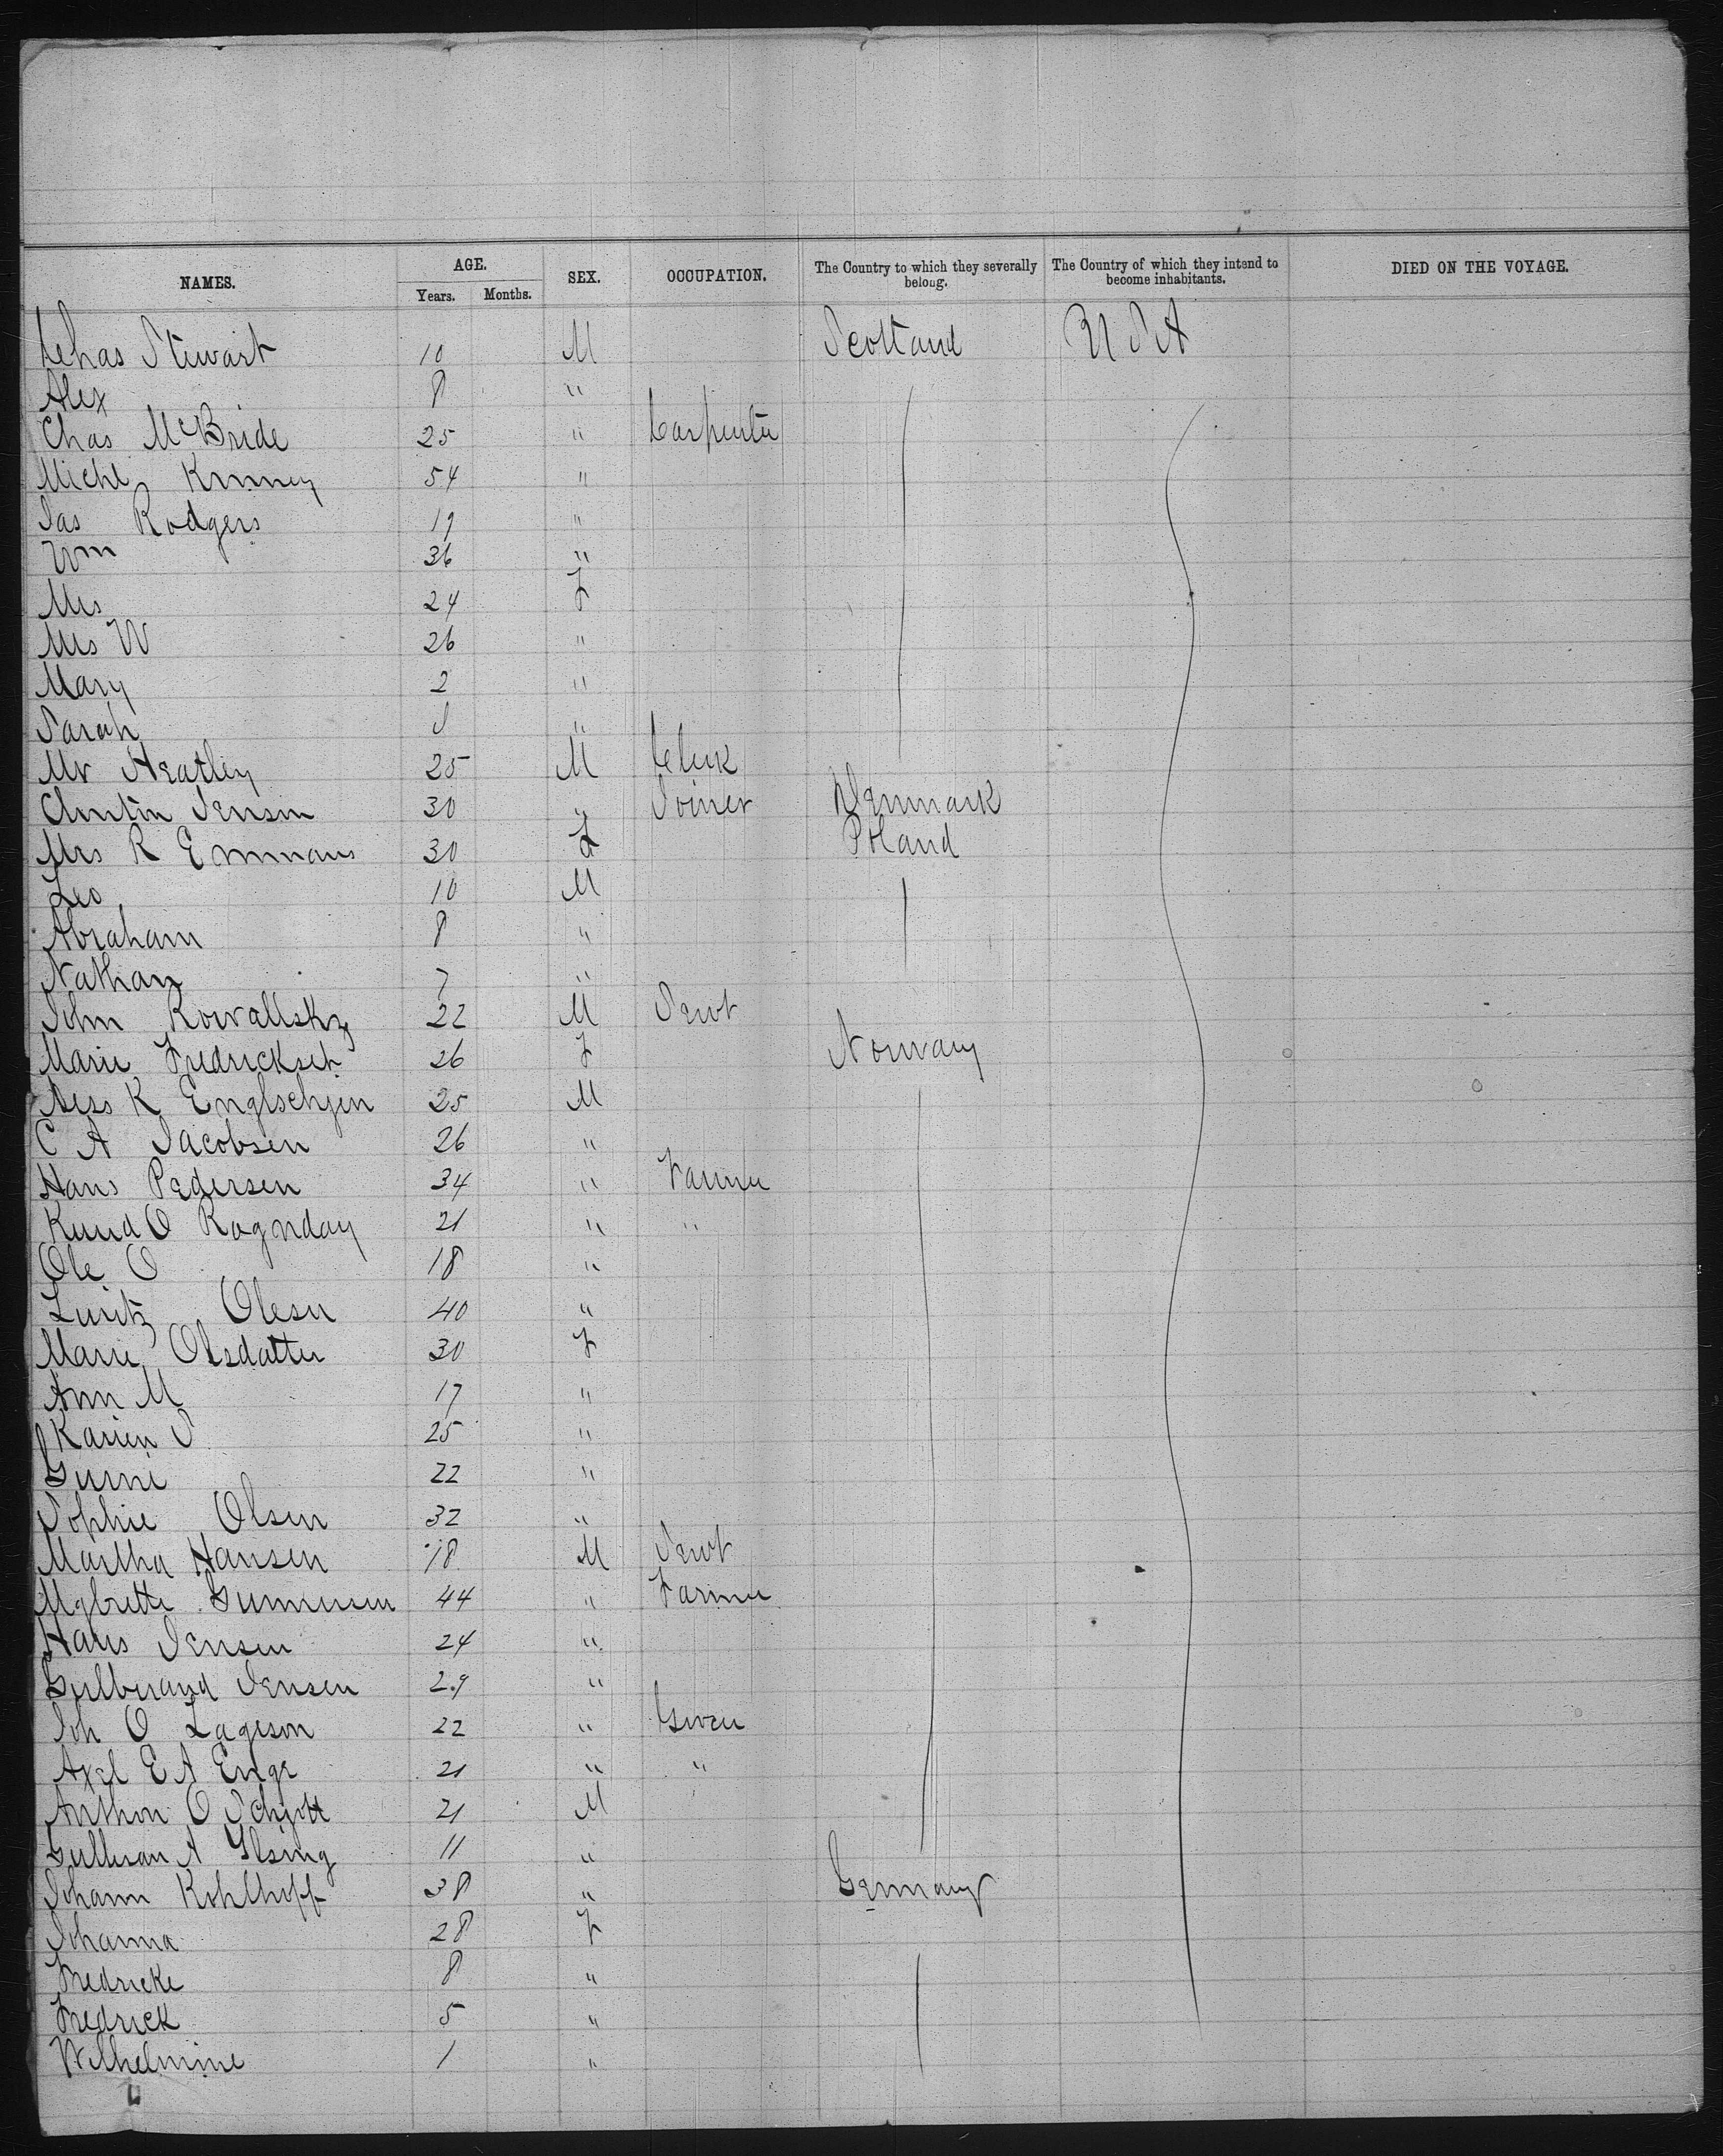 NAMES. AGE. SEX. OCCUPATION. The Country to which they severally belong. The Country of which they intend to become inhabitants. DIED ON THE VOYAGE.
Years. Months.
Chas Stewart 10 M Scotland U S A
Alex 8 "
Chas McBride 25 " Carpenter
Michl Kinney 54 "
Jas Rodgers 19 "
Wm 36 "
Mrs 24 F
Mrs W 26 "
Mary 2 "
Sarah "
Mr Heatley 25 M Clerk
Jensen 30 " Joiner Denmark
Mrs R Emmaus 30 F Poland
Leo 10 M
Abraham 8 "
Nathan 7 "
John Kowallsky 22 M Servt
Marie Fredricksen 26 F Norway
K Englschjen 25 M
C A Jacobsen 26 "
Hans Pedersen 34 " Farmer
Knud O Rognday 21 " "
Ole O 18 "
Luritz Olesen 40 "
Marie Olsdatter 30 F
Ann M 17 "
Karien S 25 "
Gurni 22 "
Sophie Olsen 32 "
Martha Hansen 18 M Servt
44 " Farmer
Hans Jensen 24 "
Gulbrand Jensen 29 "
Joh O Lageson 22 "
Axel E A Enge 21 " "
Anthon O Schjott 21 M
A 11 "
Johann Kohlhoff 38 " Germany
Johanna 28 F
Fredricke 8 "
Fredrick 5 "
Wilhelmine 1 "